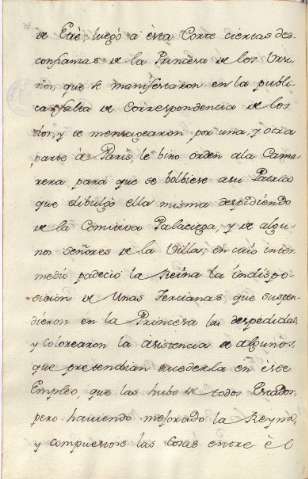 de Eñe, luego a esta Corte ciertas des
confianzas de la Princesa de los Ursi
nos, que se manifestaron en la publi
ca falta de Correspondencia de los
dos, y se mensagearon por una, y otra
parte à Paris, le vino orden a la Cama
rera, para que se bolbiese a su Pueblo
que dibulgò ella misma despidiendo
de la Comitiva Palaciega, y de algu
nos señores de la Villa; en cuio inter
medio padeciò la Reina la indispo
sicion de unas Tercianas, que suspen
dieron en la Princesa las despedidas
y colorearon la asistencia de algunos,
que pretendian sucederla en este
Empleo, que las hubo de todos Estados
pero haviendo mejorado la Reyna,
y compuestose las Cosas entre èl